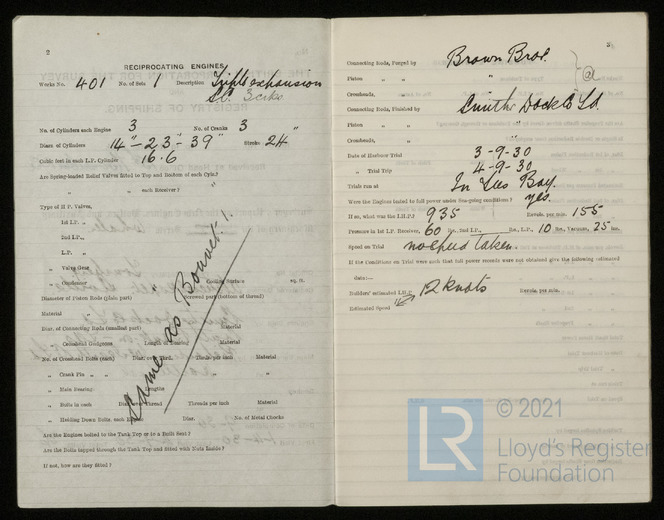 2
RECIPROCATING ENGINES.
Works No. 401 No. of Sets 1 Description Triple expansion
S.C. 3 crks
No. of Cylinders each Engine 3 No. of Cranks 3
Diars. of Cylinders 14" - 23" - 39" Stroke 24"
Cubic feet in each L.P. Cylinder 16.6
Are Spring-loaded Relief Valves fitted to Top and Bottom of each Cylr.?
" " each Receiver?
Type of H.P. Valves,
1st I.P. "
2nd I.P. "
L.P. "
" Valve Gear
" Condenser Cooling Surface sq. ft.
Diameter of Piston Rods (plain part) Screwed part (bottom of thread)
Material "
Diar. of Connecting Rods (smallest part) Material
" Crosshead Gudgeons Length of Bearing Material
No. of Crosshead Bolts (each) Diar. over Thrd. Thrds. per inch Material
" Crank Pin " " " " "
" Main Bearings Lengths
" Bolts in each Diar. over Thread Threads per inch Material
" Holding Down Bolts, each Engine Diar. No. of Metal Chocks
Are the Engines bolted to the Tank Top or to a Built Seat?
Are the Bolts tapped through the Tank Top and fitted with Nuts Inside?
If not, how are they fitted?
Same as Bouvet 1.
3
Connecting Rods, Forged by Brown Bros.
Piston " "
Crossheads,
Connecting Rods, Finished by Smiths Dock Co Ld.
Piston " "
Crossheads, "
Date of Harbour Trial 3-9-30
" Trial Trip 4-9-30
Trials run at In Tees Bay.
Were the Engines tested to full power under Sea-going conditions? yes.
If so, what was the I.H.P.? 935 Revols. per min. 155
Pressure in 1st I.P. Receiver, 60 lbs., 2nd I.P., lbs., L.P., 10 lbs., Vacuum, 25 ins.
Speed on Trial no speed taken
If the Conditions on Trial were such that full power records were not obtained give the following estimated
data:—
Builders' estimated I.H.P. Revols. per min.
Estimated Speed 12 knots
LR
© 2021
Lloyd's Register
Foundation